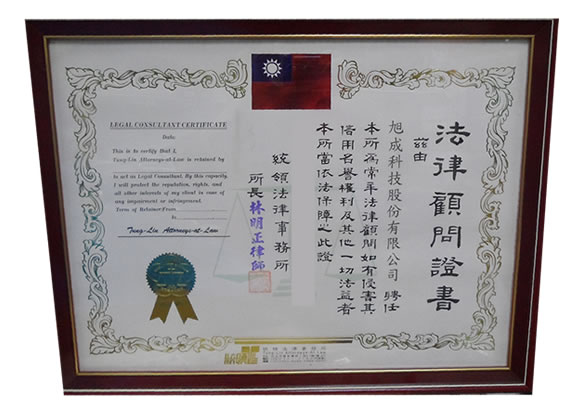 法律顧問證書
茲由
旭成科技股份有限公司 聘任
本所為常年法律顧問如有侵害其
信用名譽權利及其他一切法益者
本所當依法保障之此證
統領法律事務所
所長 林明正律師
LEGAL CONSULTANT CERTIFICATE
Date:
This is to certify that I,
Tung-Lin Attorneys-at-Law is retained by
to act as Legal Consultant. By this capacity
I will protect the reputation, rights, and
all other interests of my client in case of
any impairment or infringement.
Term of Retainer: From
To
Tung-Lin Attorneys-at-Law